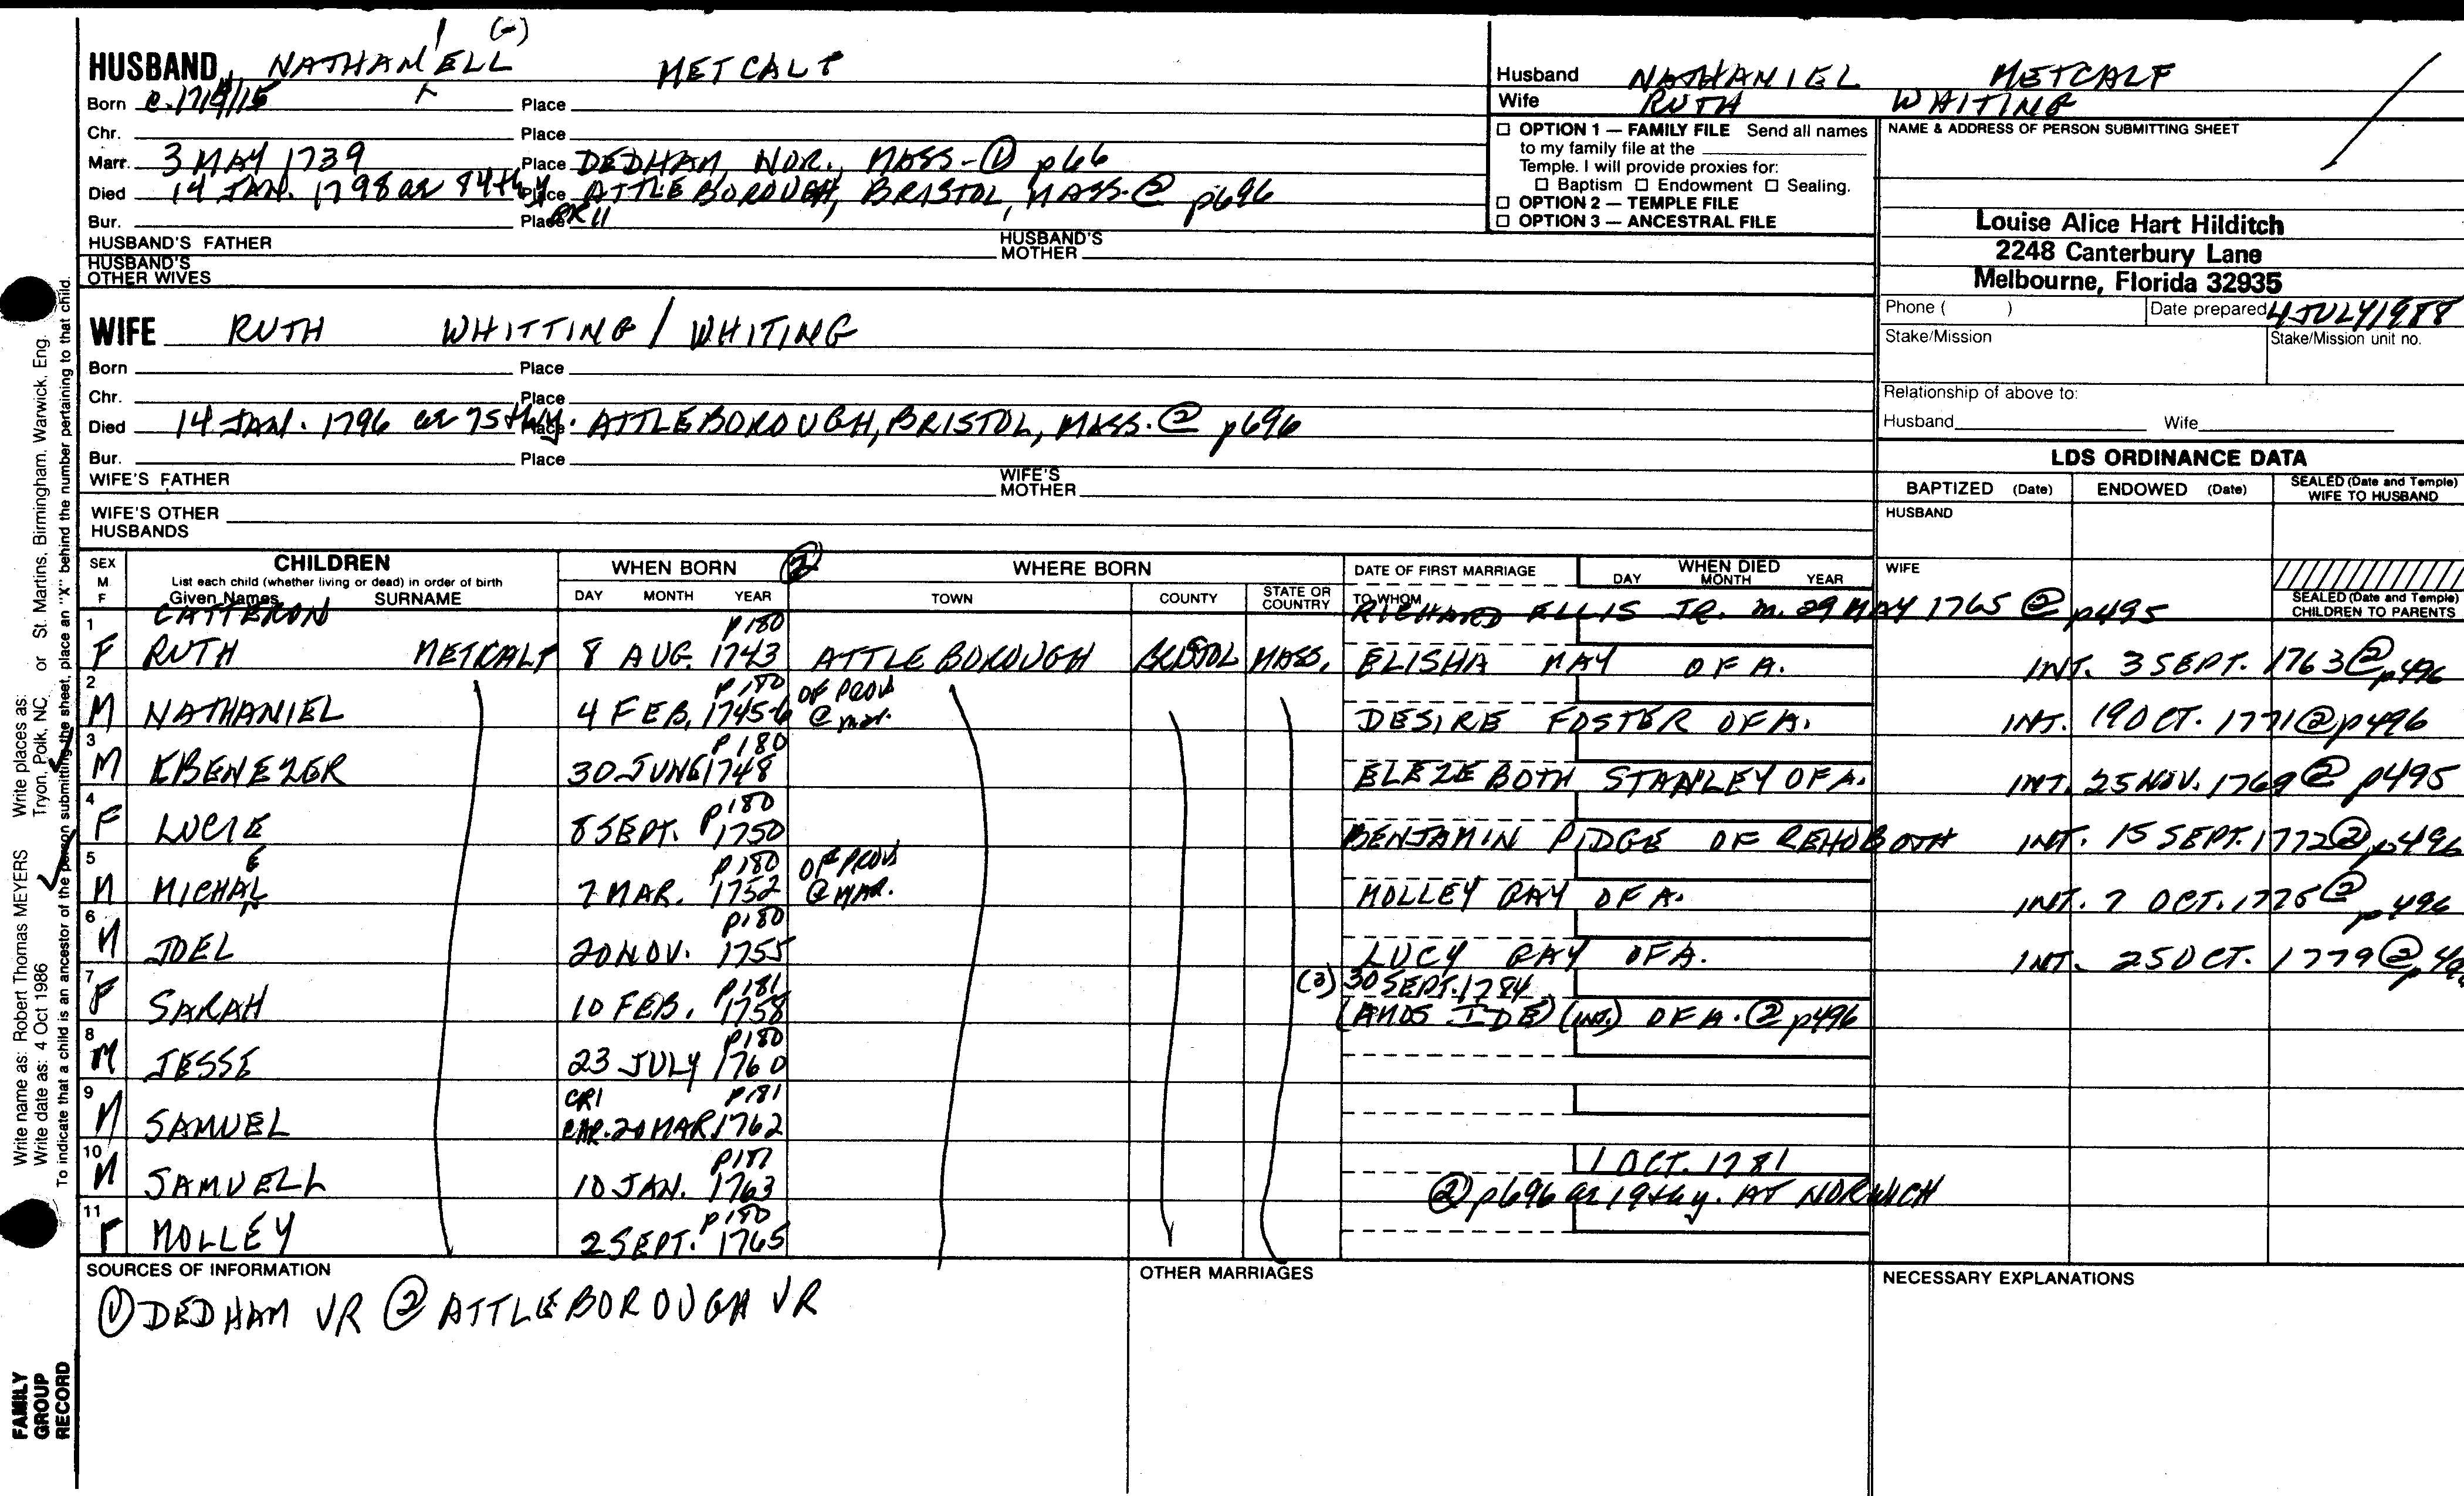 (-)
HUSBAND NATHANIELL METCALF
Born c. 1714/15 Place
Chr. Place
Marr. 3 MAY 1739 Place DEDHAM, NOR., MASS-① p66
Died 14 JAN. 1798 ae 84th y Place ATTLEBOROUGH, BRISTOL, MASS.② p696
Bur. Place GR 11
HUSBAND'S FATHER HUSBAND'S MOTHER
HUSBAND'S OTHER WIVES
WIFE RUTH WHITTING / WHITING
Born Place
Chr. Place
Died 14 JAN. 1796 ae 75th y. Place ATTLEBOROUGH, BRISTOL, MASS.② p696
Bur. Place
WIFE'S FATHER WIFE'S MOTHER
WIFE'S OTHER HUSBANDS
Husband NATHANIEL METCALF
Wife RUTH WHITING
□ OPTION 1 — FAMILY FILE Send all names
to my family file at the
Temple. I will provide proxies for:
□ Baptism □ Endowment □ Sealing.
□ OPTION 2 — TEMPLE FILE
□ OPTION 3 — ANCESTRAL FILE
NAME & ADDRESS OF PERSON SUBMITTING SHEET
Louise Alice Hart Hilditch
2248 Canterbury Lane
Melbourne, Florida 32935
Phone ( ) Date prepared 4 JULY 1988
Stake/Mission Stake/Mission unit no.
Relationship of above to:
Husband Wife
LDS ORDINANCE DATA
BAPTIZED (Date) ENDOWED (Date) SEALED (Date and Temple) WIFE TO HUSBAND
HUSBAND
WIFE
SEALED (Date and Temple) CHILDREN TO PARENTS
SEX M F CHILDREN WHEN BORN ② WHERE BORN DATE OF FIRST MARRIAGE WHEN DIED
List each child (whether living or dead) in order of birth
Given Names SURNAME DAY MONTH YEAR TOWN COUNTY STATE OR COUNTRY TO WHOM DAY MONTH YEAR
CATTERON RICHARD ELLIS JR. m. 29 MAY 1765 ② p495
p180
1 F RUTH METCALF 8 AUG. 1743 ATTLEBOROUGH BRISTOL MASS. ELISHA MAY OF A. INT. 3 SEPT. 1763 ② p496
p180 OF PROV
2 M NATHANIEL 4 FEB. 1745-6 @ mar. DESIRE FOSTER OF A. INT. 19 OCT. 1771 ② p496
p180
3 M EBENEZER 30 JUNE 1748 ELEZEBOTH STANLEY OF A. INT. 25 NOV. 1769 ② p495
p180
4 F LUCIE 8 SEPT. 1750 BENJAMIN PIDGE OF REHOBOTH INT. 15 SEPT. 1772 ② p496
E p180 OF PROV
5 M MICHAL 7 MAR. 1752 @ MAR. MOLLEY DAY OF A. INT. 7 OCT. 1775 ② p496
p180
6 M JOEL 20 NOV. 1755 LUCY DAY OF A. INT. 25 OCT. 1779 ② p496
p181 (3) 30 SEPT. 1784
7 F SARAH 10 FEB. 1758 (AMOS IDE) (INT.) OF A. ② p496
p180
8 M JESSE 23 JULY 1760
CR1 p181
9 M SAMUEL CHR. 20 MAR. 1762
p181 1 OCT. 1781
10 M SAMUELL 10 JAN. 1763 ② p696 ae 19th y. AT NORWICH
p180
11 F MOLLEY 2 SEPT. 1765
SOURCES OF INFORMATION OTHER MARRIAGES NECESSARY EXPLANATIONS
① DEDHAM VR ② ATTLEBOROUGH VR
Write name as: Robert Thomas MEYERS Write places as:
Write date as: 4 Oct 1986 Tryon, Polk, NC, or St. Martins, Birmingham, Warwick, Eng.
To indicate that a child is an ancestor of the person submitting the sheet, place an "X" behind the number pertaining to that child.
FAMILY
GROUP
RECORD